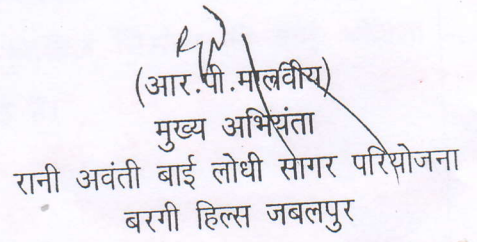 (आर.पी.मालवीय)
मुख्य अभियंता
रानी अवंती बाई लोधी सागर परियोजना
बरगी हिल्स जबलपुर